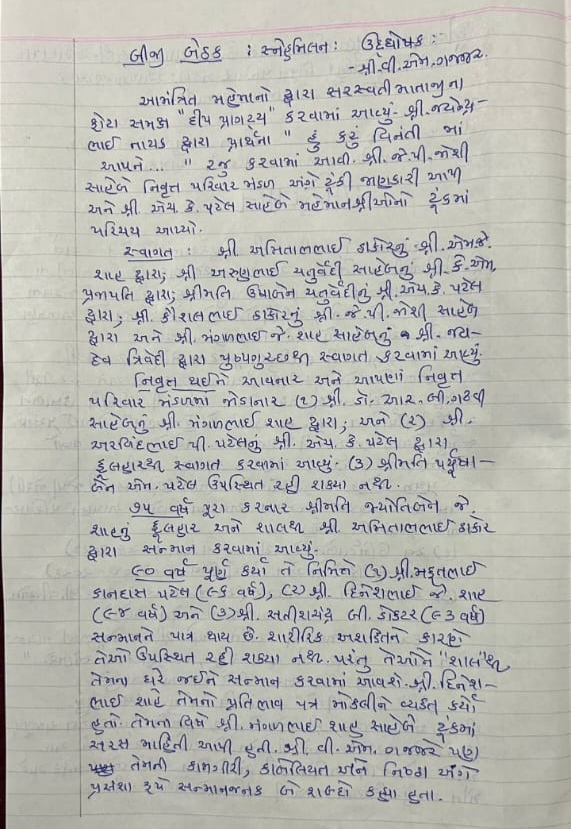 બીજી બેઠક : સ્નેહમિલન : ઉદ્ઘોષક :
- શ્રી.વી.એમ.ગજ્જર.
આમંત્રિત મહેમાનો દ્વારા સરસ્વતી માતાજીના
ફોટા સમક્ષ "દીપ પ્રાગટ્ય" કરવામાં આવ્યું. શ્રી.જયેન્દ્ર-
ભાઈ નાયક દ્વારા પ્રાર્થના " હું કરું વિનંતી માં
આપને... " રજુ કરવામાં આવી. શ્રી.જે.પી.જોશી
સાહેબે નિવૃત્ત પરિવાર મંડળ અંગે ટૂંકી જાણકારી આપી
અને શ્રી એચ.કે.પટેલ સાહેબે મહેમાનશ્રીઓનો ટૂંકમાં
પરિચય આપ્યો.
સ્વાગત : શ્રી અમિતાભભાઈ ઠાકોરનું શ્રી.એમ.જે.
શાહ દ્વારા; શ્રી અરુણભાઈ ચતુર્વેદી સાહેબનું શ્રી.કે.એમ.
પ્રજાપતિ દ્વારા; શ્રીમતિ ઉષાબેન ચતુર્વેદીનું શ્રી.એચ.કે.પટેલ
દ્વારા; શ્રી.કૌશલભાઈ ઠાકોરનું શ્રી.જે.પી.જોશી સાહેબ
દ્વારા અને શ્રી.મંગળભાઈ જે.શાહ સાહેબનું શ્રી.જય-
દેવ ત્રિવેદી દ્વારા પુષ્પગુચ્છથી સ્વાગત કરવામાં આવ્યું.
નિવૃત્ત થઈને આવનાર અને આપણાં નિવૃત્ત
પરિવાર મંડળમાં જોડાનાર (૧) શ્રી.ડૉ.આર.બી.ગઢવી
સાહેબનું શ્રી.મંગળભાઈ શાહ દ્વારા; અને (૨) શ્રી.
અરવિંદભાઈ પી.પટેલનું શ્રી.એચ.કે.પટેલ દ્વારા
ફૂલહારથી સ્વાગત કરવામાં આવ્યું. (૩) શ્રીમતિ પર્યૂષા-
બેન એમ.પટેલ ઉપસ્થિત રહી શક્યા નથી.
૭૫ વર્ષ પૂરા કરનાર શ્રીમતિ જ્યોતિબેન જે.
શાહનું ફૂલહાર અને શાલથી શ્રી અમિતાભભાઈ ઠાકોર
દ્વારા સન્માન કરવામાં આવ્યું.
૯૦ વર્ષ પૂર્ણ કર્યાં તે નિમિત્તે (૧) શ્રી.મફતલાઈ
કાનદાસ પટેલ (૯૬ વર્ષ), (૨) શ્રી. દિનેશભાઈ જે. શાહ
(૯૪ વર્ષ) અને (૩) શ્રી. સતીશચંદ્ર બી. ડૉક્ટર (૯૩ વર્ષ)
સન્માનને પાત્ર થાય છે. શારીરિક અશક્તિને કારણે
તેઓ ઉપસ્થિત રહી શક્યા નથી. પરંતુ તેઓને "શાલ"થી
તેમના ઘરે જઈને સન્માન કરવામાં આવશે. શ્રી.દિનેશ-
ભાઈ શાહે તેમનો પ્રતિભાવ પત્ર મોકલીને વ્યક્ત કર્યો
હતો. તેમના વિષે શ્રી.મંગળભાઈ શાહ સાહેબે ટૂંકમાં
સરસ માહિતી આપી હતી. શ્રી. વી. એમ. ગજ્જરે પણ
તેમની કામગીરી, કાબેલિયત અને નિષ્ઠા અંગે
પ્રસંશા રૂપે સન્માનજનક બે શબ્દો કહ્યા હતા.